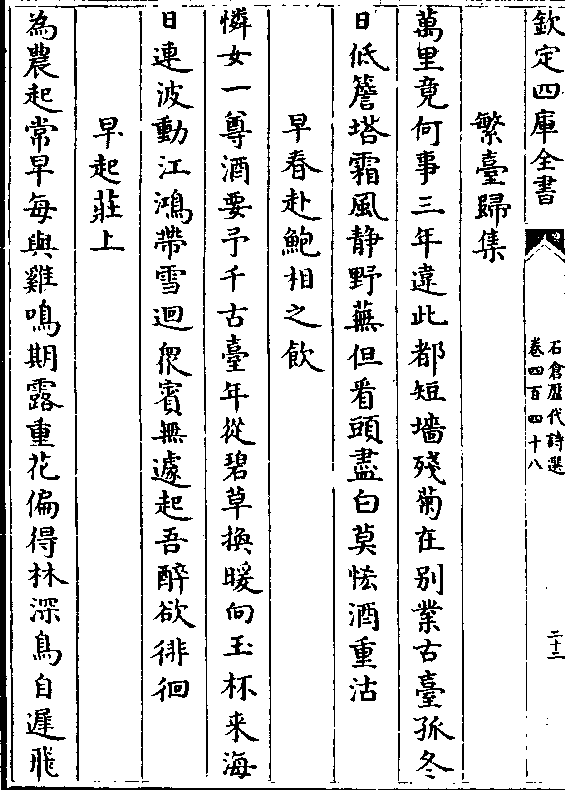 欽定四庫全書
石倉歷代詩選
卷四百四十八
二十二
繁臺歸集
萬里竟何事三年違此都短墻殘菊在别業古臺孤冬
日低簷塔霜風静野蕪但看頭盡白莫怯酒重沽
早春赴鮑相之飲
憐女一尊酒要予千古臺年從碧草換暖向玉杯来海
日連波動江鴻帶雪迴衆賓無遽起吾醉欲徘徊
早起莊上
為農起常早每與雞鳴期露重花偏得林深鳥自遲飛